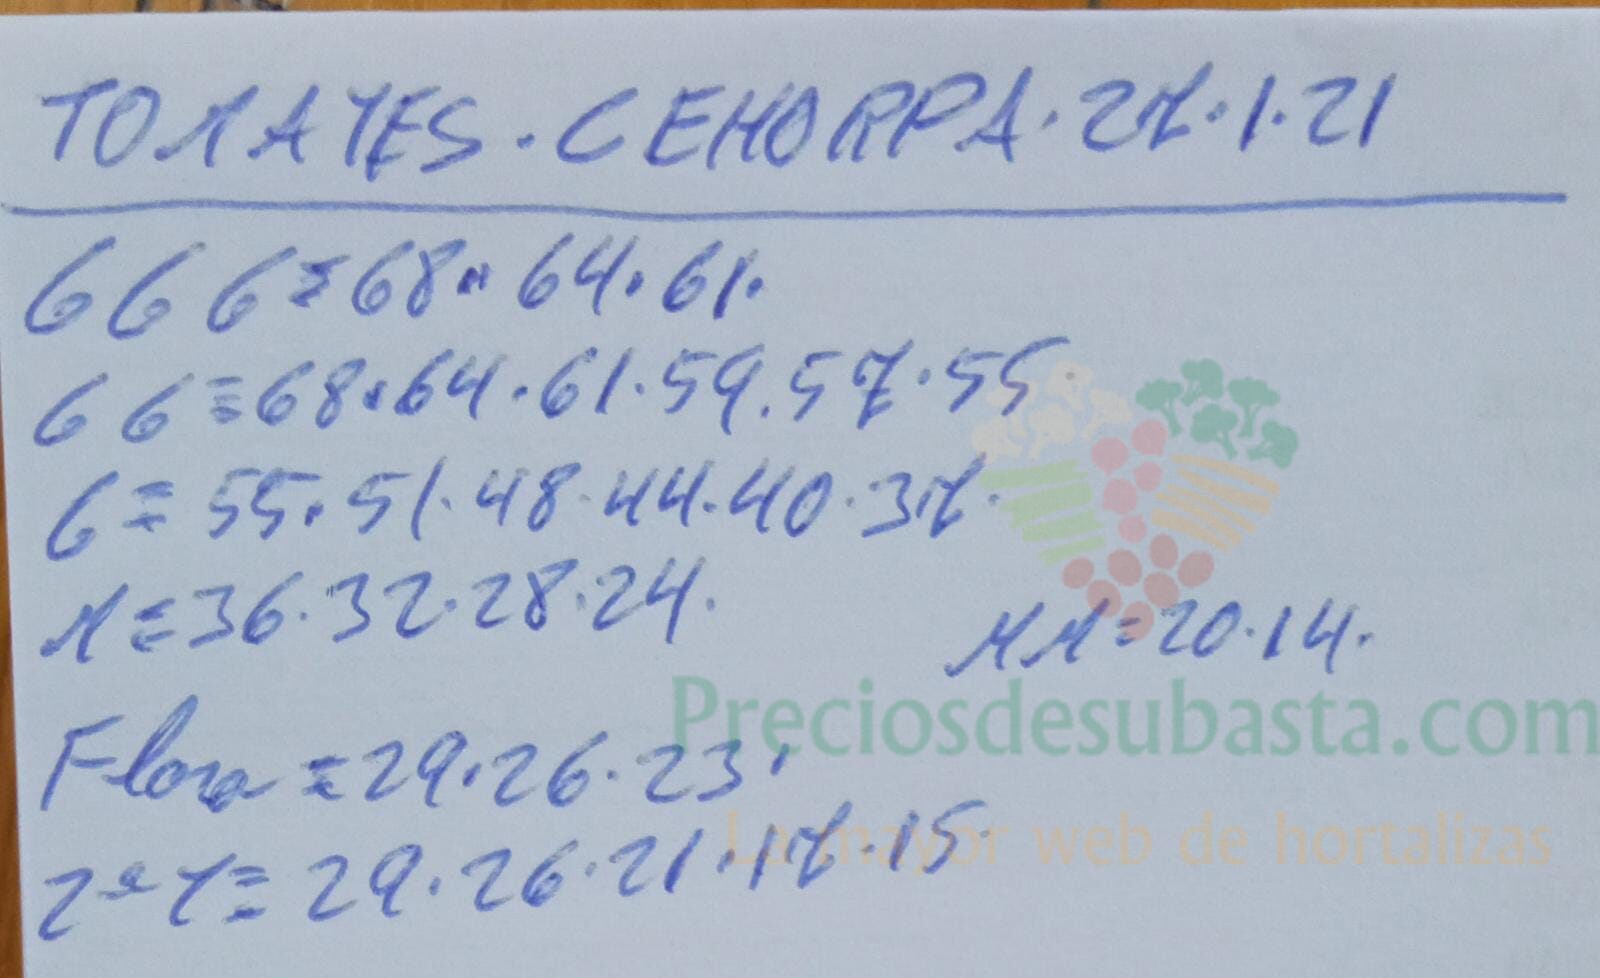 TOMATES. CEHORPA. 27.1.21
GGG = 68. 64. 61.
GG = 68. 64. 61. 59. 57. 55.
G = 55. 51. 48. 44. 40. 37.
M = 36. 32. 28. 24.
MM = 20. 14.
Preciosdesubasta.com
Flora = 29. 26. 23.
La mayor web de hortalizas
2ª T = 29. 26. 21. 17. 15.